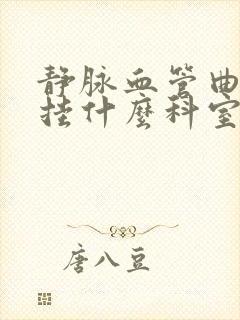 静脉血管曲
挂什麼科室
唐八豆